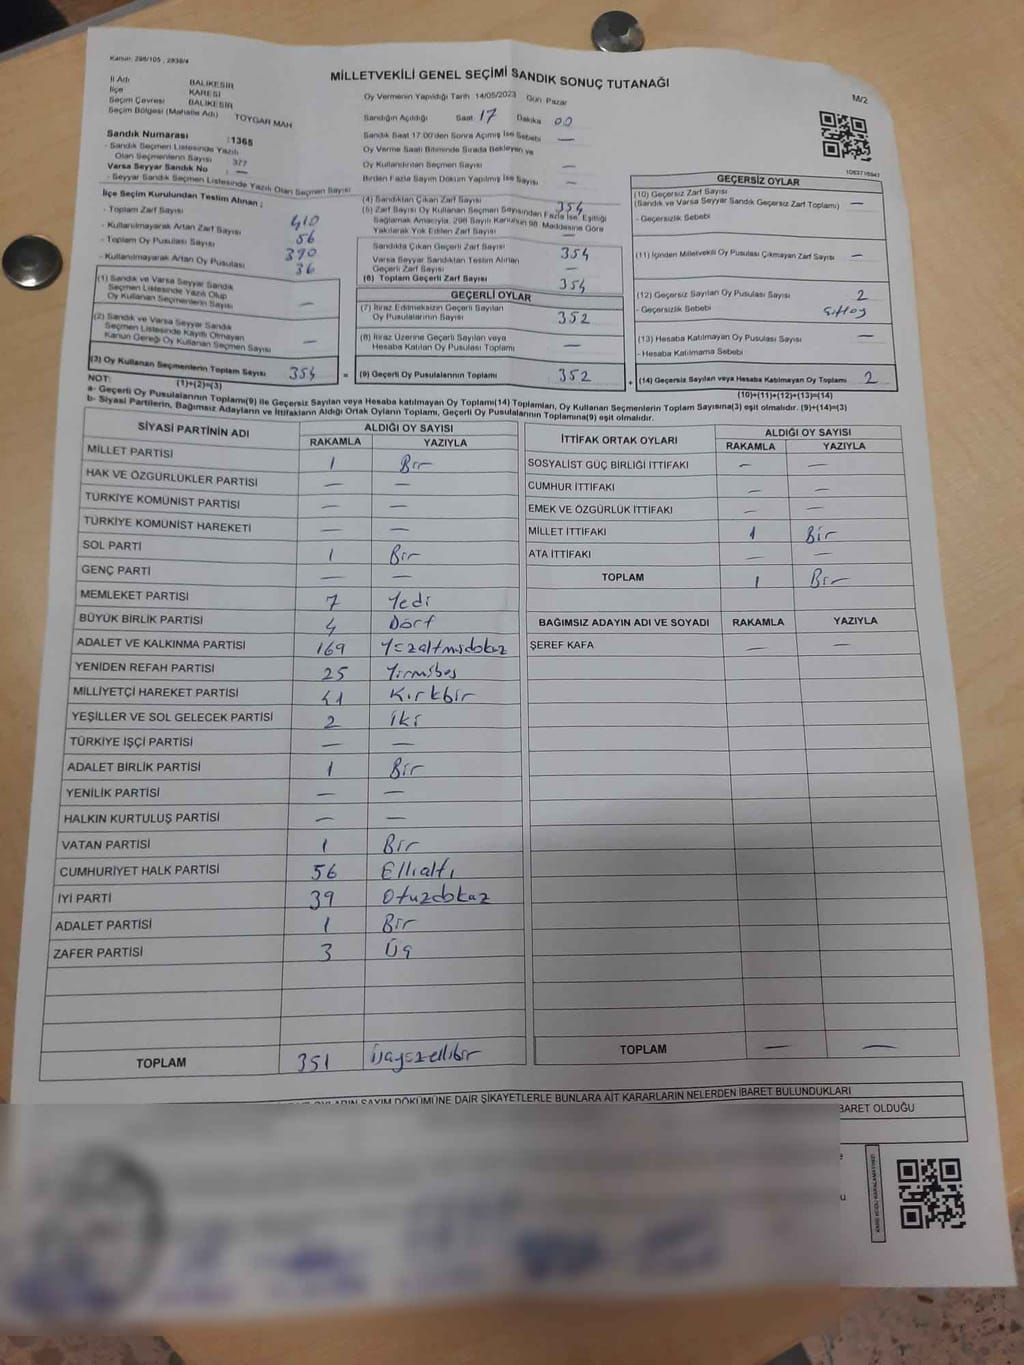 Kanun: 298/105 , 2839/4
MİLLETVEKİLİ GENEL SEÇİMİ SANDIK SONUÇ TUTANAĞI
M/2
İl Adı BALIKESİR
İlçe KARESİ
Seçim Çevresi BALIKESİR
Seçim Bölgesi (Mahalle Adı) TOYGAR MAH
Sandık Numarası :1365
- Sandık Seçmen Listesinde Yazılı
Olan Seçmenlerin Sayısı 377
Varsa Seyyar Sandık No : —
- Seyyar Sandık Seçmen Listesinde Yazılı Olan Seçmen Sayısı
Oy Vermenin Yapıldığı Tarih 14/05/2023 Gün Pazar
Sandığın Açıldığı Saat 17 Dakika 00
Sandık Saat 17:00'den Sonra Açılmış İse Sebebi —
Oy Verme Saati Bitiminde Sırada Bekleyen ve
Oy Kullandırılan Seçmen Sayısı —
Birden Fazla Sayım Döküm Yapılmış İse Sayısı —
1053716943
İlçe Seçim Kurulundan Teslim Alınan ;
- Toplam Zarf Sayısı 410
- Kullanılmayarak Artan Zarf Sayısı 56
- Toplam Oy Pusulası Sayısı 390
- Kullanılmayarak Artan Oy Pusulası 36
(1) Sandık ve Varsa Seyyar Sandık
Seçmen Listesinde Yazılı Olup
Oy Kullanan Seçmenlerin Sayısı —
(2) Sandık ve Varsa Seyyar Sandık
Seçmen Listesinde Kayıtlı Olmayan
Kanun Gereği Oy Kullanan Seçmen Sayısı —
(3) Oy Kullanan Seçmenlerin Toplam Sayısı 354
(1)+(2)=(3)
(4) Sandıktan Çıkan Zarf Sayısı 354
(5) Zarf Sayısı Oy Kullanan Seçmen Sayısından Fazla İse, Eşitliği
Sağlamak Amacıyla, 298 Sayılı Kanunun 98. Maddesine Göre
Yakılarak Yok Edilen Zarf Sayısı —
Sandıkta Çıkan Geçerli Zarf Sayısı 354
Varsa Seyyar Sandıktan Teslim Alınan
Geçerli Zarf Sayısı —
(6) Toplam Geçerli Zarf Sayısı 354
GEÇERLİ OYLAR
(7) İtiraz Edilmeksizin Geçerli Sayılan
Oy Pusulalarının Sayısı 352
(8) İtiraz Üzerine Geçerli Sayılan veya
Hesaba Katılan Oy Pusulası Toplamı —
= (9) Geçerli Oy Pusulalarının Toplamı 352
GEÇERSİZ OYLAR
(10) Geçersiz Zarf Sayısı
(Sandık ve Varsa Seyyar Sandık Geçersiz Zarf Toplamı) —
- Geçersizlik Sebebi
(11) İçinden Milletvekili Oy Pusulası Çıkmayan Zarf Sayısı —
(12) Geçersiz Sayılan Oy Pusulası Sayısı 2
- Geçersizlik Sebebi
(13) Hesaba Katılmayan Oy Pusulası Sayısı —
- Hesaba Katılmama Sebebi
+ (14) Geçersiz Sayılan veya Hesaba Katılmayan Oy Toplamı 2
(10)+(11)+(12)+(13)=(14)
NOT:
a- Geçerli Oy Pusulalarının Toplamı(9) ile Geçersiz Sayılan veya Hesaba katılmayan Oy Toplamı(14) Toplamları, Oy Kullanan Seçmenlerin Toplam Sayısına(3) eşit olmalıdır. (9)+(14)=(3)
b- Siyasi Partilerin, Bağımsız Adayların ve İttifakların Aldığı Ortak Oyların Toplamı, Geçerli Oy Pusulalarının Toplamına(9) eşit olmalıdır.
SİYASİ PARTİNİN ADI ALDIĞI OY SAYISI
RAKAMLA YAZIYLA
MİLLET PARTİSİ 1 Bir
HAK VE ÖZGÜRLÜKLER PARTİSİ — —
TÜRKİYE KOMÜNİST PARTİSİ — —
TÜRKİYE KOMÜNİST HAREKETİ — —
SOL PARTİ 1 Bir
GENÇ PARTİ — —
MEMLEKET PARTİSİ 7 Yedi
BÜYÜK BİRLİK PARTİSİ 4 Dört
ADALET VE KALKINMA PARTİSİ 169 Yüzaltmışdokuz
YENİDEN REFAH PARTİSİ 25 Yirmibeş
MİLLİYETÇİ HAREKET PARTİSİ 41 Kırkbir
YEŞİLLER VE SOL GELECEK PARTİSİ 2 İki
TÜRKİYE İŞÇİ PARTİSİ — —
ADALET BİRLİK PARTİSİ 1 Bir
YENİLİK PARTİSİ — —
HALKIN KURTULUŞ PARTİSİ — —
VATAN PARTİSİ 1 Bir
CUMHURİYET HALK PARTİSİ 56 Ellialtı
İYİ PARTİ 39 Otuzdokuz
ADALET PARTİSİ 1 Bir
ZAFER PARTİSİ 3 Üç
TOPLAM 351 Üçyüzellibir
İTTİFAK ORTAK OYLARI ALDIĞI OY SAYISI
RAKAMLA YAZIYLA
SOSYALİST GÜÇ BİRLİĞİ İTTİFAKI — —
CUMHUR İTTİFAKI — —
EMEK VE ÖZGÜRLÜK İTTİFAKI — —
MİLLET İTTİFAKI 1 Bir
ATA İTTİFAKI — —
TOPLAM 1 Bir
BAĞIMSIZ ADAYIN ADI VE SOYADI RAKAMLA YAZIYLA
ŞEREF KAFA — —
TOPLAM — —
OYLARIN SAYIM DÖKÜMÜNE DAİR ŞİKAYETLERLE BUNLARA AİT KARARLARIN NELERDEN İBARET BULUNDUKLARI
BARET OLDUĞU